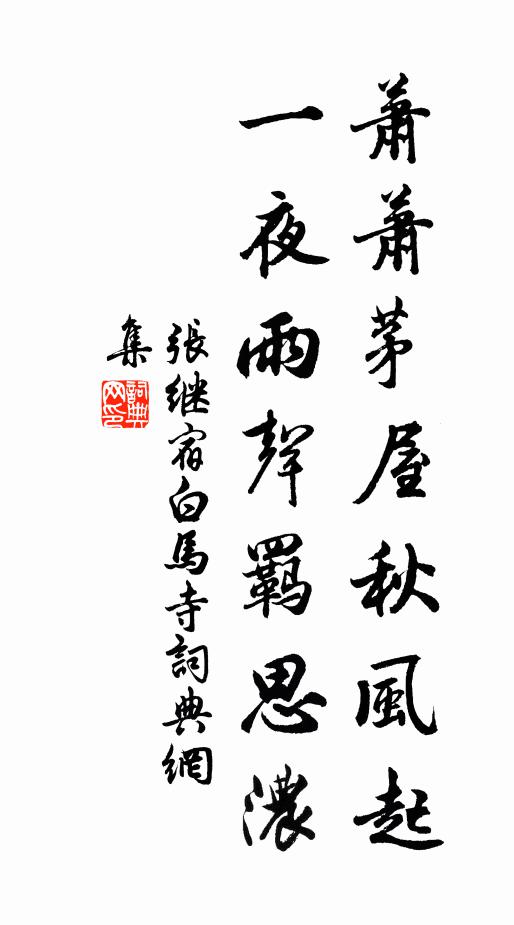 蕭蕭茅屋秋風起
一夜雨聲羈思濃
張继宿白馬寺詞典網
集
詞典网印